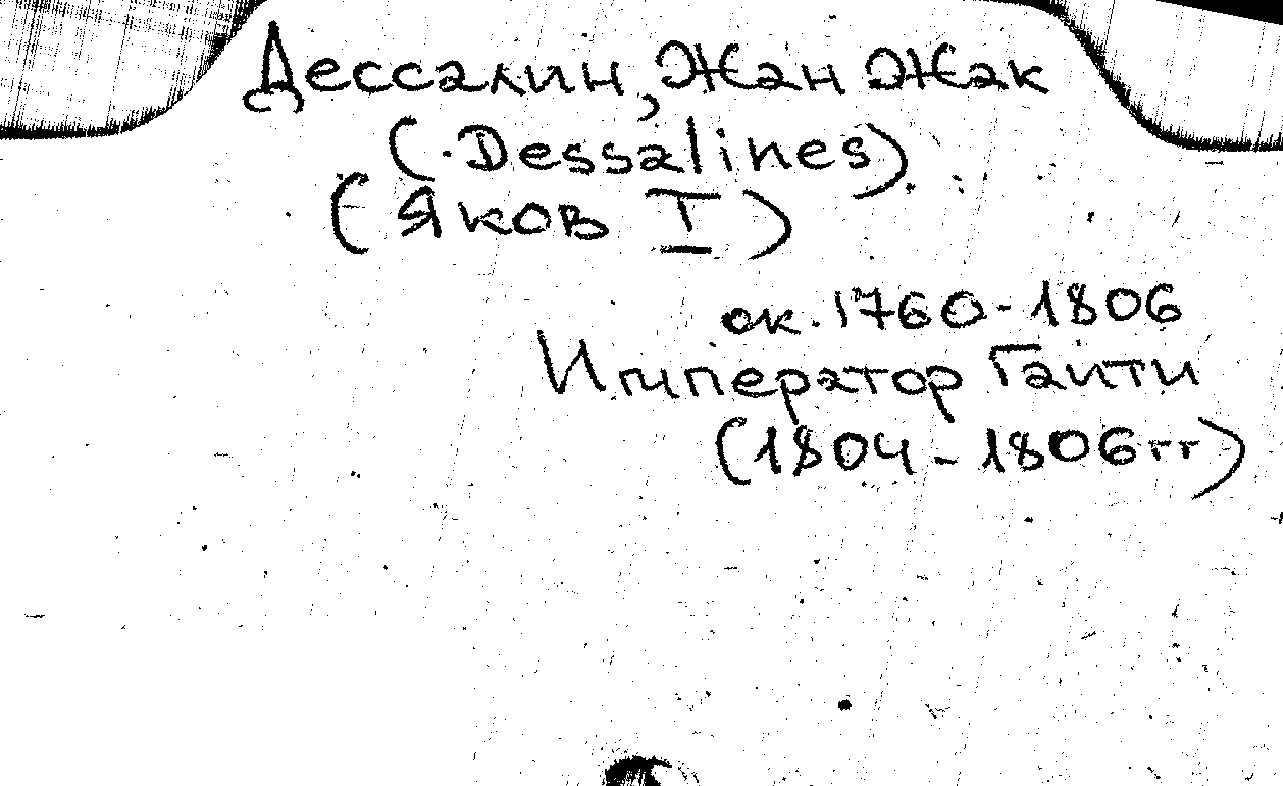 Дессалин, Жан Жак
(Dessalines)
(Яков I)
ок. 1760-1806
Император Гаити
(1804-1806гг)